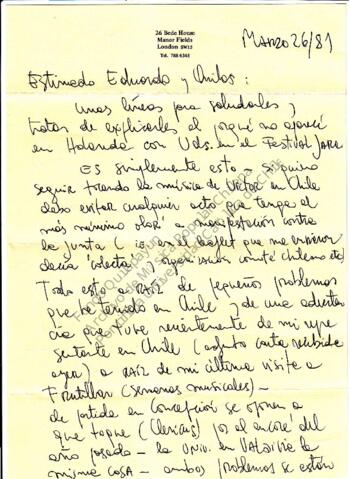 26 Bede House
Manor Fields
London SW15
Tel. 788 6343
Marzo 26/81
Estimado Eduardo y Quilas:
Unas líneas para saludarles y
tratar de explicarles el porqué no aparecí
en Holanda con Uds. en el Festival Jara
Es simplemente esto - Si quiero
seguir tocando la música de Victor en Chile
debo evitar cualquier acto que tenga el
más mínimo olor a manifestación contra
la junta (io en el leaflet que me
decía 'colecta organización comité chileno etc)
Todo esto a raíz de pequeños problemas
que he tenido en Chile y de una
cia que tuve recientemente de mi repre
sentante en Chile (adjunto carta recibida
ayer) a raíz de mi última visita a
Frutillar (Semanas musicales) -
de partida en Concepción se oponen a
que toque por el encore del
año pasado - la Univ. en Valdivia la
misma cosa - ambos problemas se están